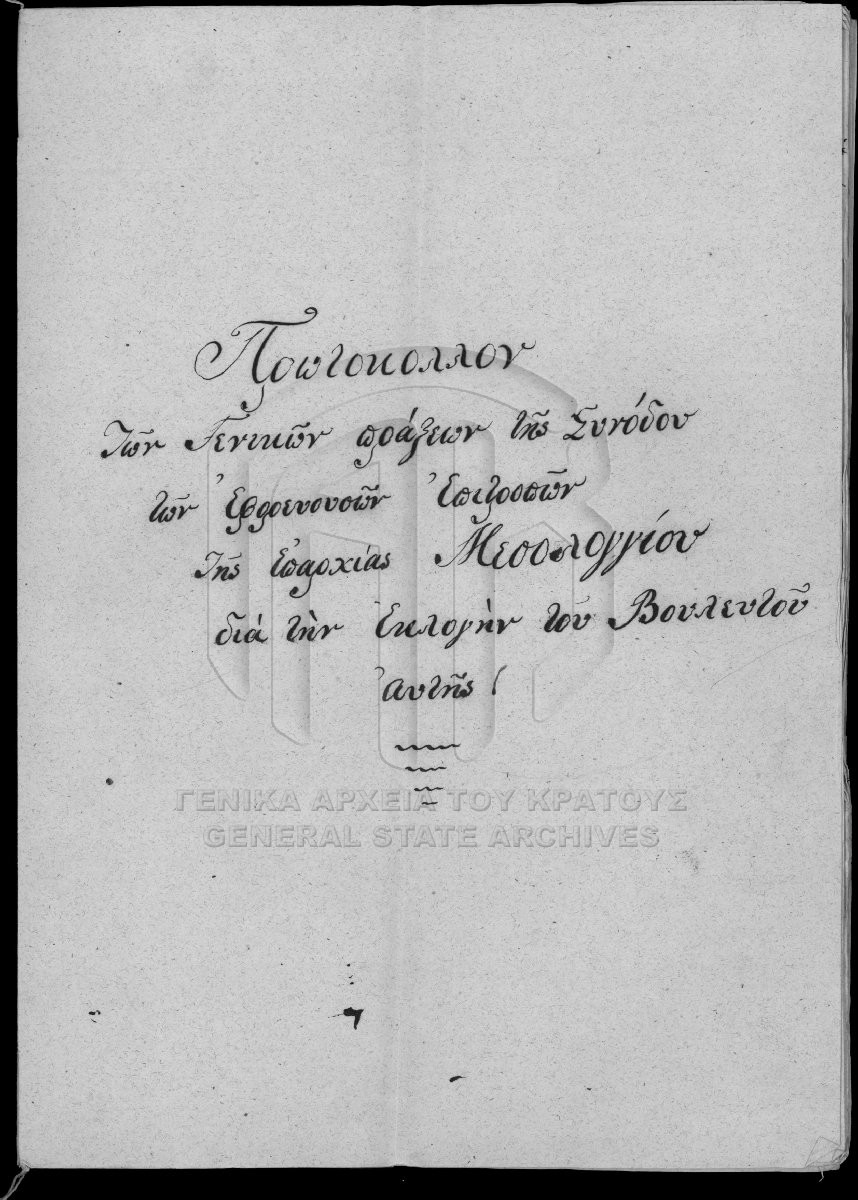 Πρωτοκολλον
Τῶν Γενικῶν πράξεων τῆς Συνόδου
τῶν Ἐφορευουσῶν Ἐπιτροπῶν
Τῆς Ἐπαρχίας Μεσολογγίου
διά τὴν Ἐκλογὴν τοῦ Βουλευτοῦ
Ἀυτῆς
ΓΕΝΙΚΑ ΑΡΧΕΙΑ ΤΟΥ ΚΡΑΤΟΥΣ
GENERAL STATE ARCHIVES